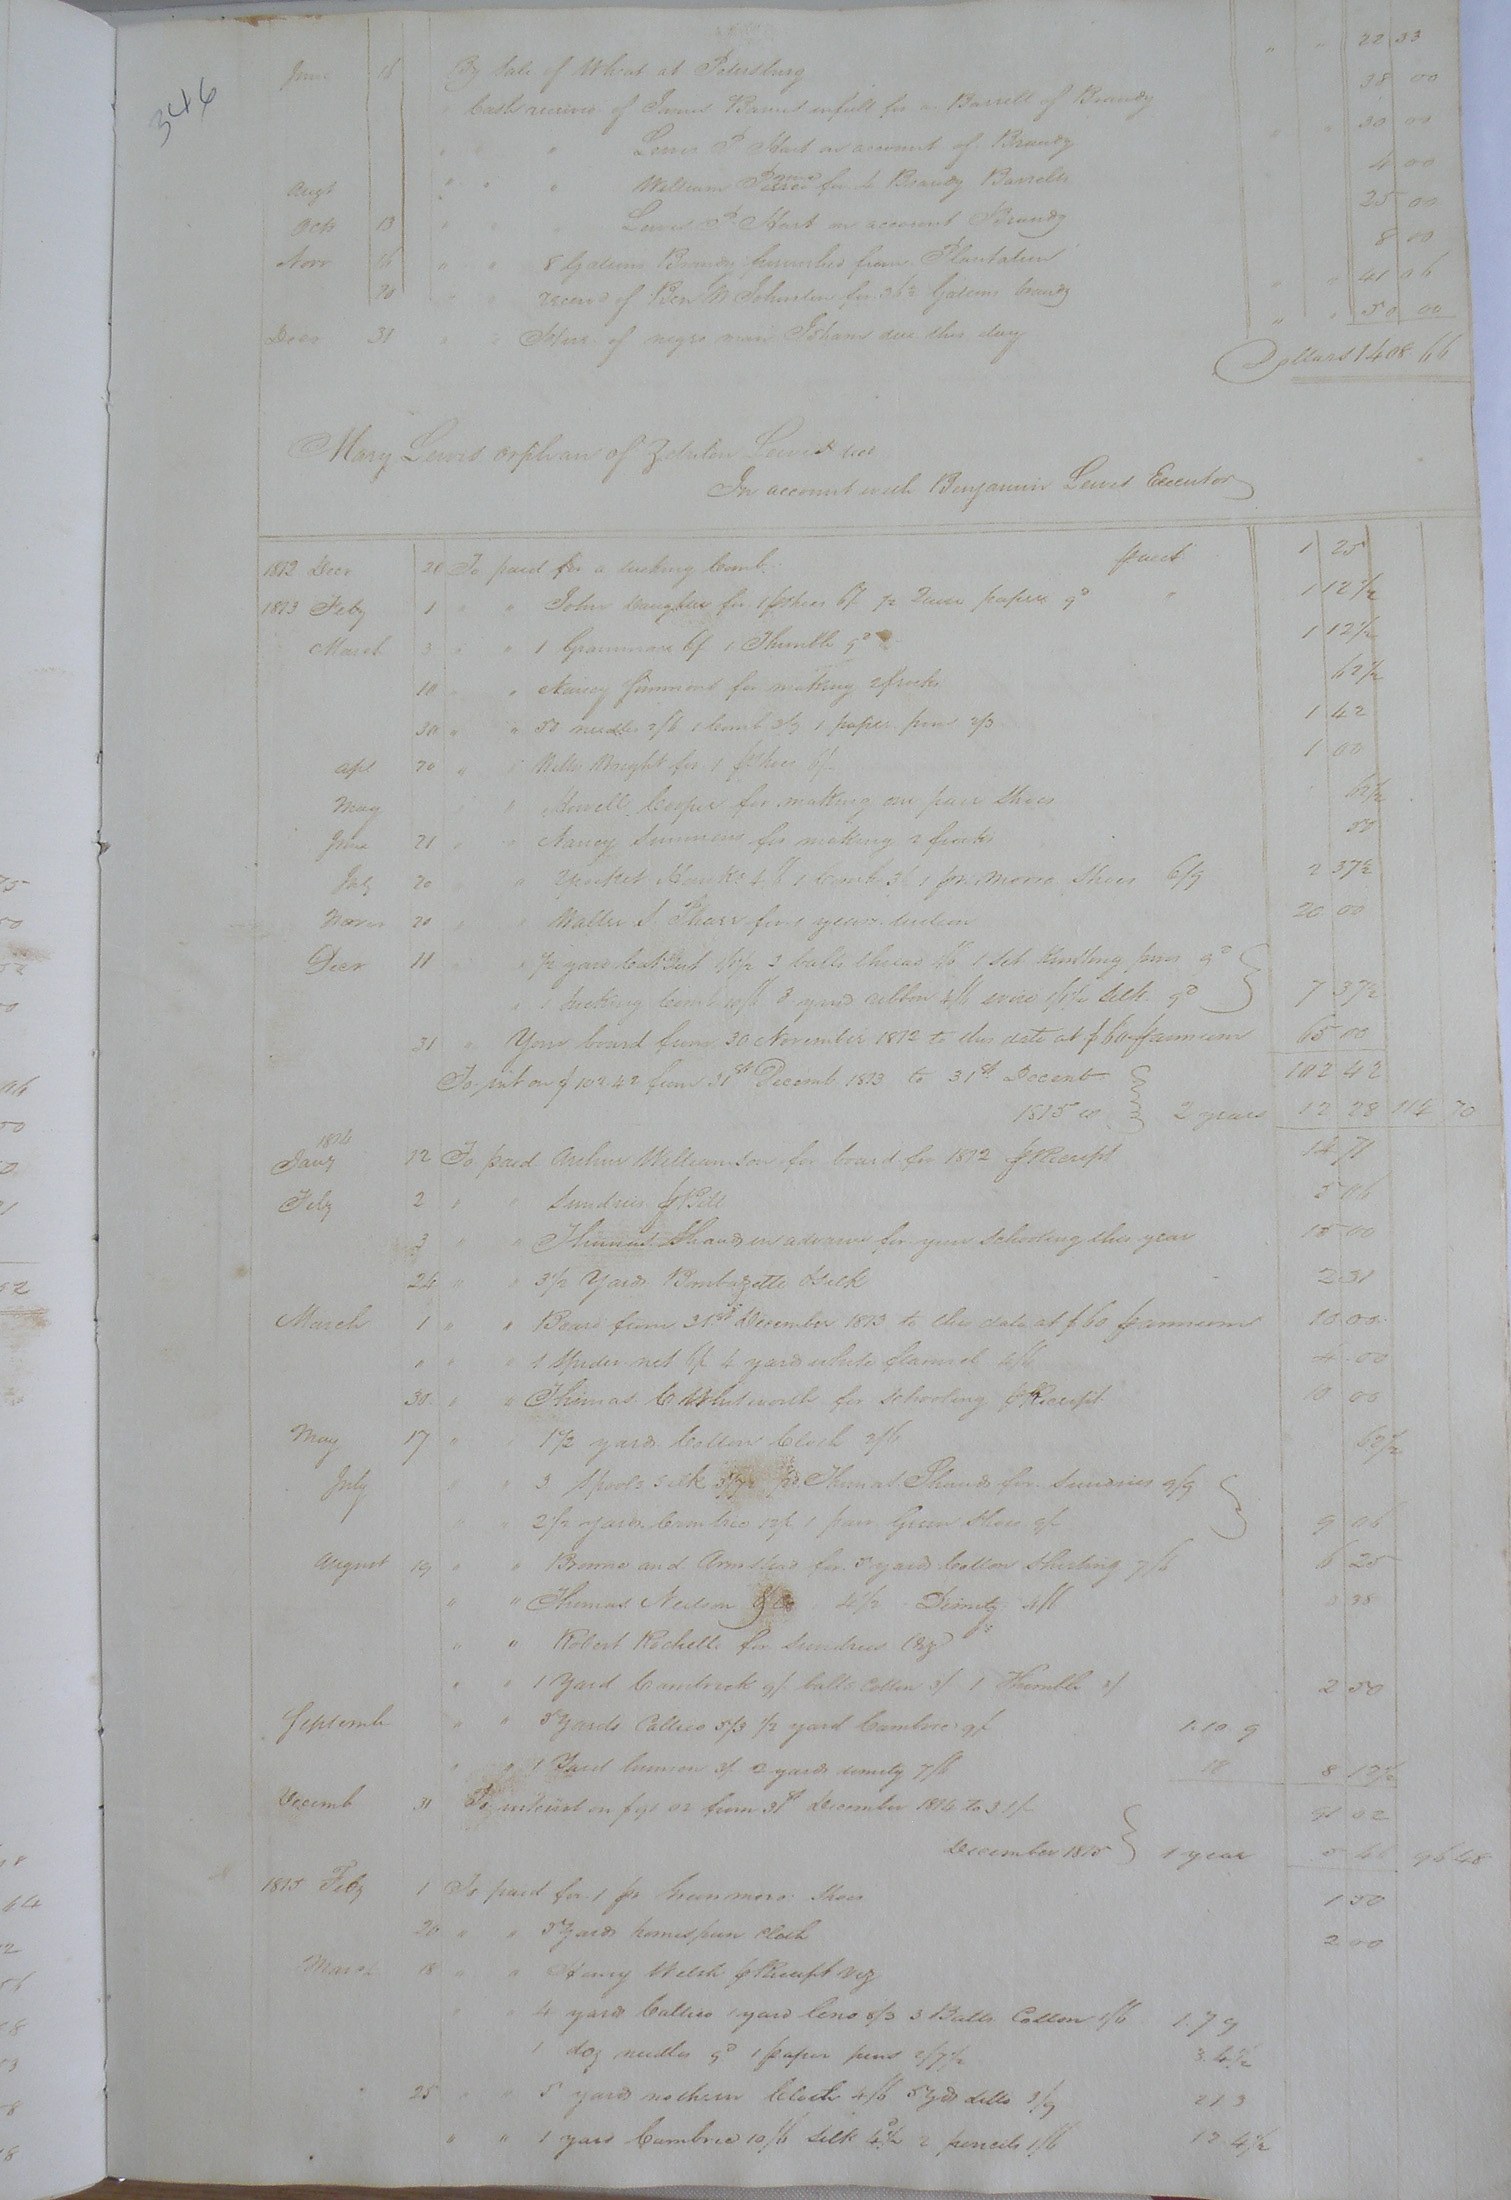 346
" " 22 33
June 16 By Sale of Wheat at Petersburg 38 00
Cash received of James Barnes in full for a Barrell of Brandy
" " " Lewis P Hart on account of Brandy " " 30 00
Augt " " " William for 4 Brandy Barrells 4 00
Octo 13 " " " Lewis P. Hart on account Brandy 25 00
Novr 16 " " 8 Galons Brandy furnished from Plantation 8 00
20 " " received of Ben W Johnston for 36½ Galons brandy " " 41 06
Decr 31 " " Hire of negro man Isham due this day " " 50 00
Dollars 1408 66
Mary Lewis orphan of Zebulon Lewis decd
In account with Benjamin Lewis Executor
1812 Decr 20 To paid for a tucking Comb. 1 25
1813 Feby 1 " " John for 1 pr Shoes 6/ ½ Quire paper 9d " 1 12½
March 3 " " 1 Grammar 6/ 1 Thimble 9d 1 12½
10 " " Nancy Simmons for making 2 frocks 62½
30 " " 50 needles 2/6 1 Comb 1 paper pins 2/3 1 42
Apl 20 " " Wright for 1 pr Shoes 6/ 1 00
May " " Howell Cooper for making one pair Shoes 62½
June 21 " " Nancy Simmons for making 2 frocks 50
July 20 " " Hanks 4/6 1 Comb 3/ 1 pr Moroo Shoes 6/9 2 37½
Novr 20 " " Walter S. for 1 years tuition 20 00
Decr 11 " " ½ yard 3 balls thread 1/6 1 Set Knitting pins 9d
" 1 tucking Comb 10/6 3 yards ribbon 4/6 wire 1/1½ Silk 9d 7 37½
31 " Your board from 30 November 1812 to this date at $60 pr annum 65 00
To int on $102.42 from 31st Decemb 1813 to 31st Decemb 102 42
1815 is 2 years 12 28 114 70
1814
Jany 12 To paid Archer Williamson for board for 1812 pr Receipt 14 71
Feby 2 " " Sundries pr Bill 5 06
3 " " Thomas Shands in advance for your Schooling this year 15 00
24 " " 3½ Yards Bombazette & Silk 2 31
March 1 " " Board from 31st December 1813 to this date at $60 pr annum 10 00
" " " 1 Spider net 6/ 4 yards white flannel 4/6 4 00
30 " " Thomas C Whitworth for schooling pr Receipt 10 00
May 17 " " 1½ yards Cotton Cloth 2/6 62½
July " " 3 Spools Silk Thomas Shands for Sundries 9/9
" " 2½ yards Cambric 12/ 1 pair Green Shoes 9/ 9 06
August 19 " " Browne and Armstead for 5 yards Cotton Shirting 7/6 6 25
" " Thomas Nelson & Co 4½ Dimity 4/6 3 38
" " Robert Rochelle for Sundries (viz)
" " 1 Yard Cambrick 9/ balls Cotton 3/ 1 Thimble 3/ 2 50
Septemb " " 5 Yards Callico 5/3 ½ yard Cambric 9/ 1.10 9
" " 1 Yard 3/ 2 yards dimity 7/6 18 8 12½
Decemb 31 To interest on $91 02 from 31st December 1814 to 31st 91 02
December 1815 1 year 5 46 96 48
1815 Feby 1 To paid for 1 pr Green moro: Shoes 1 50
20 " " 5 Yards homespun Cloth 2 00
March 18 " " Henry Welsh pr Receipt viz
" " 4 yards Callico 1 yard leno 8/3 3 Balls Cotton 1/6 1.7 9
1 doz needles 9d 1 paper pins 2/7½ 3.4½
25 " " 5 yards nothern Cloth 4/6 5 Yds ditto 3/9 2 1 3
" " 1 yard Cambric 10/6 Silk 4½d 2 pencils 1/6 12 4½